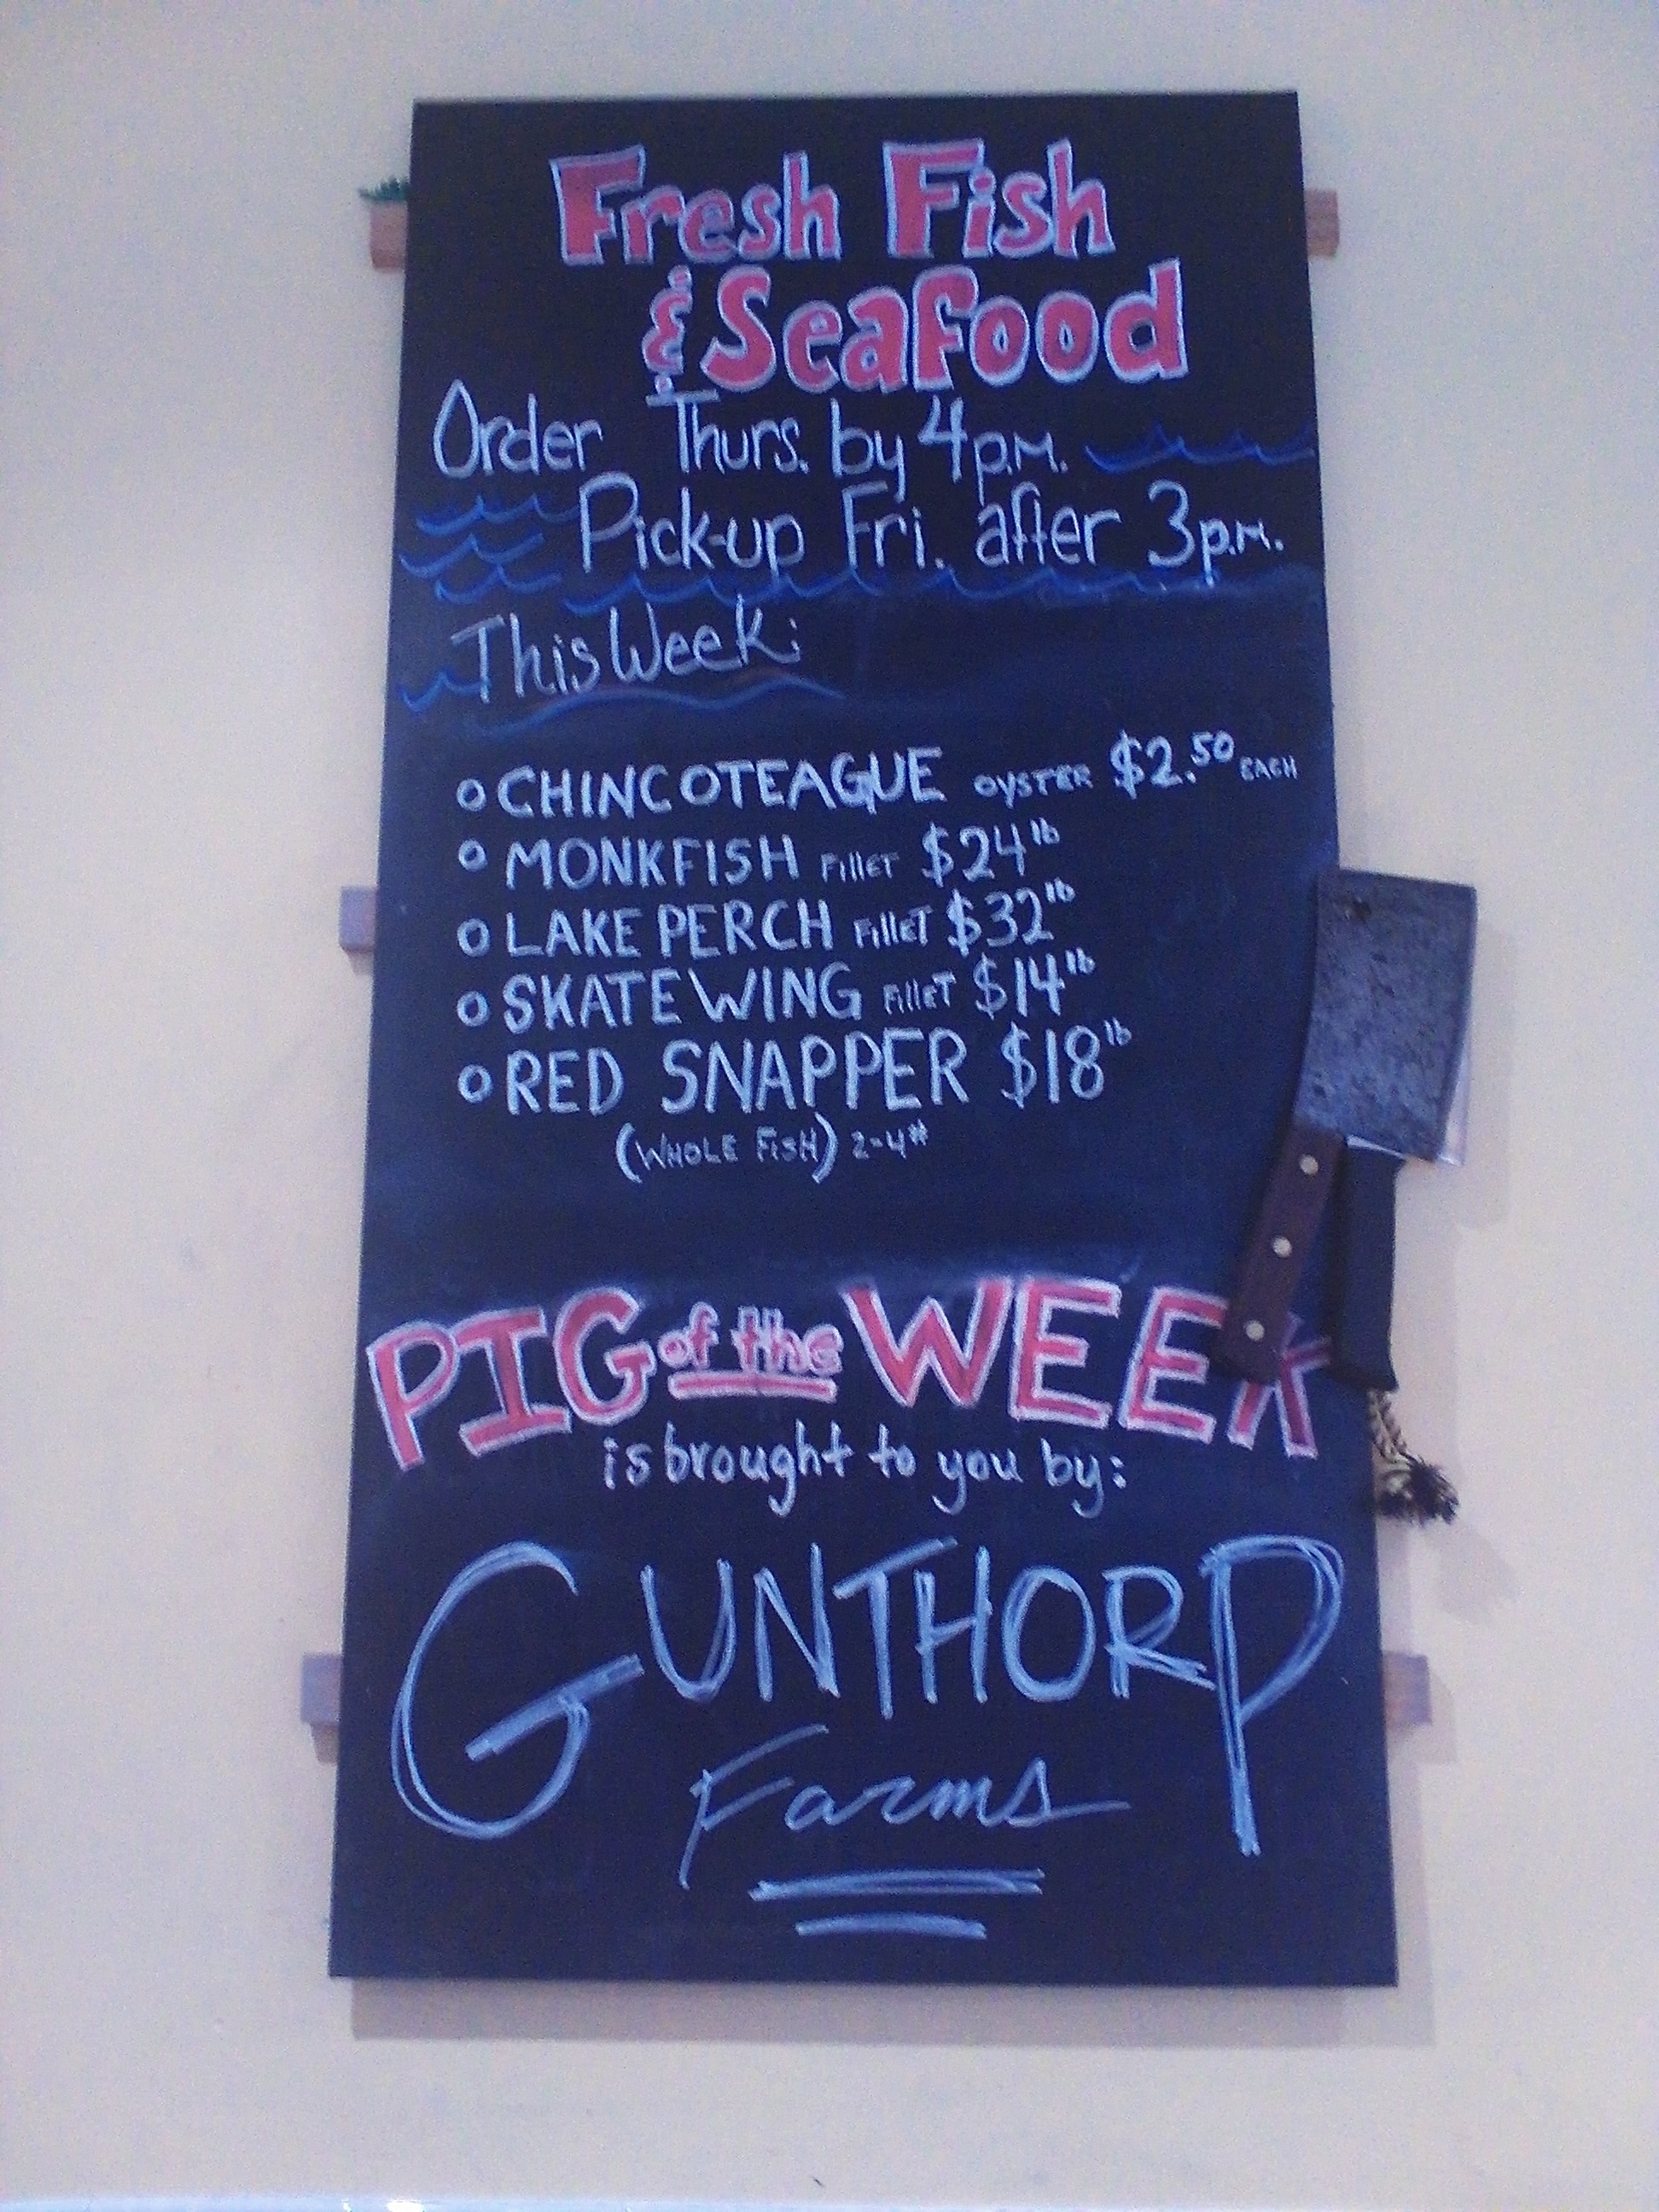 Fresh Fish
& Seafood
Order Thurs. by 4p.m.
Pick-up Fri. after 3p.m.
This Week:
CHINCOTEAGUE OYSTER $2.50 EACH
MONKFISH FILLET $24 lb
LAKE PERCH FILLET $32 lb
SKATE WING FILLET $14 lb
RED SNAPPER $18 lb
(WHOLE FISH) 2-4#
PIG of the WEEK
is brought to you by:
GUNTHORP
Farms